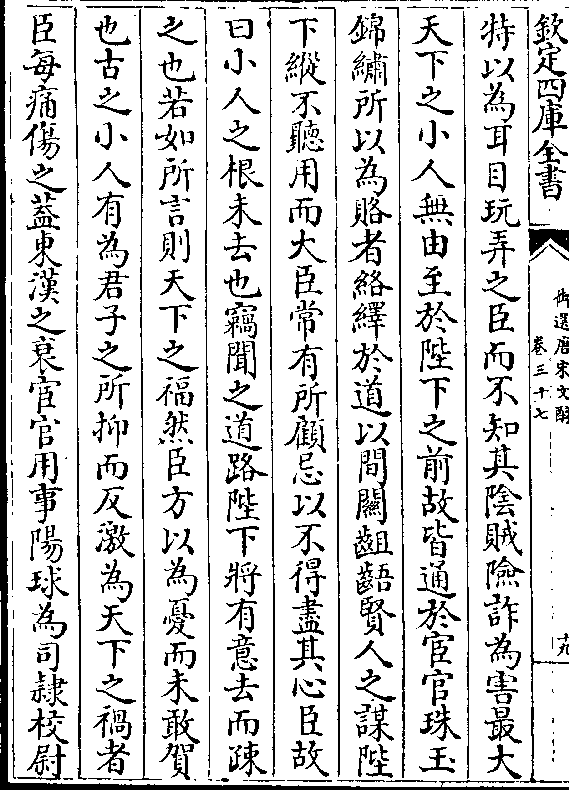 欽定四庫全書
御選唐宋文醇
卷三十七
十九
特以為耳目玩弄之臣而不知其陰賊險詐為害最大
天下之小人無由至於陛下之前故皆通於宦官珠玉
錦繡所以為賂者絡繹於道以間關齟齬賢人之謀陛
下縱不聽用而大臣常有所顧忌以不得盡其心臣故
曰小人之根未去也竊聞之道路陛下將有意去而疎
之也若如所言則天下之福然臣方以為憂而未敢賀
也古之小人有為君子之所抑而反激為天下之禍者
臣每痛傷之葢東漢之衰宦官用事陽球為司隷校尉